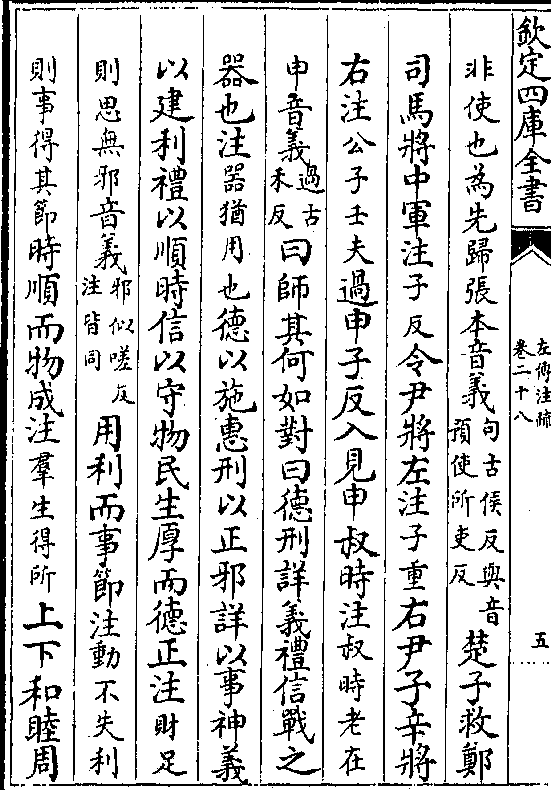 欽定四庫全書
左傳注疏
卷二十八
五
非使也為先歸張本音義句古侯反與音
預使所吏反
楚子救鄭
司馬將中軍注子反令尹將左注子重右尹子辛將
右注公子壬夫過申子反入見申叔時注叔時老在
申音義過古
禾反
曰師其何如對曰德刑詳義禮信戰之
器也注器猶用也德以施惠刑以正邪詳以事神義
以建利禮以順時信以守物民生厚而德正注財足
則思無邪音義邪似嗟反
注皆同
用利而事節注動不失利
則事得其節時順而物成注羣生得所上下和睦周